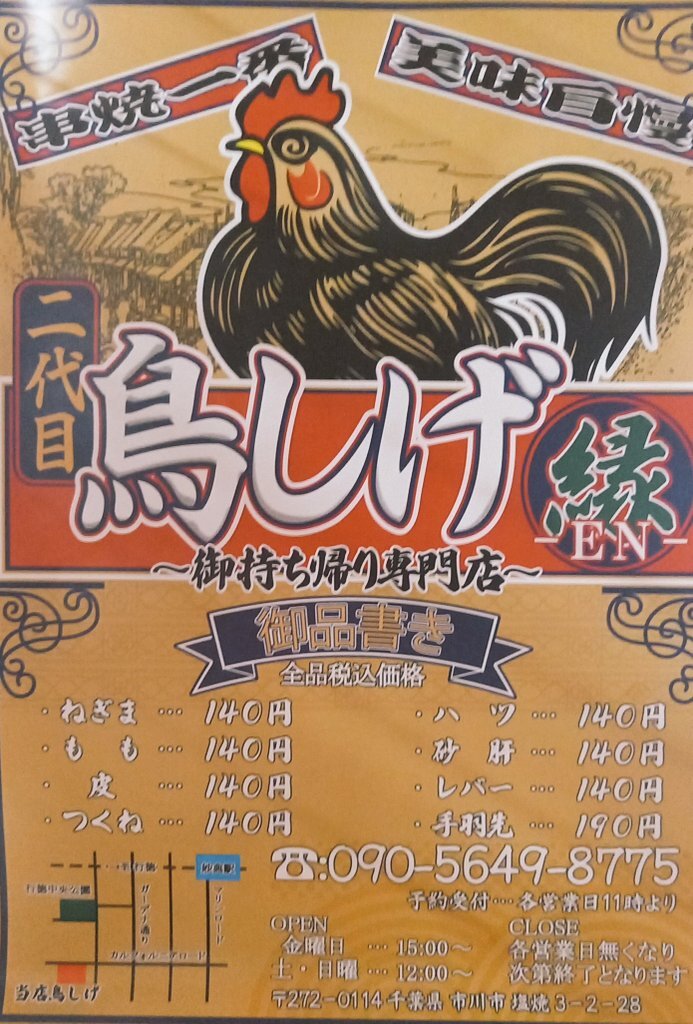 串焼一番
美味自慢
二代目
鳥しげ
縁
-EN-
~御持ち帰り専門店~
御品書き
全品税込価格
・ねぎま … 140円
・もも … 140円
・皮 … 140円
・つくね … 140円
・ハツ … 140円
・砂肝 … 140円
・レバー … 140円
・手羽先 … 190円
☎:090-5649-8775
予約受付…各営業日11時より
OPEN
金曜日 … 15:00~
土・日曜 … 12:00~
CLOSE
各営業日無くなり
次第終了となります
〒272-0114 千葉県 市川市 塩焼 3-2-28
妙典駅
行徳中央公園
ガーデナ通り
マリンロード
カルフォルニアロード
当店鳥しげ